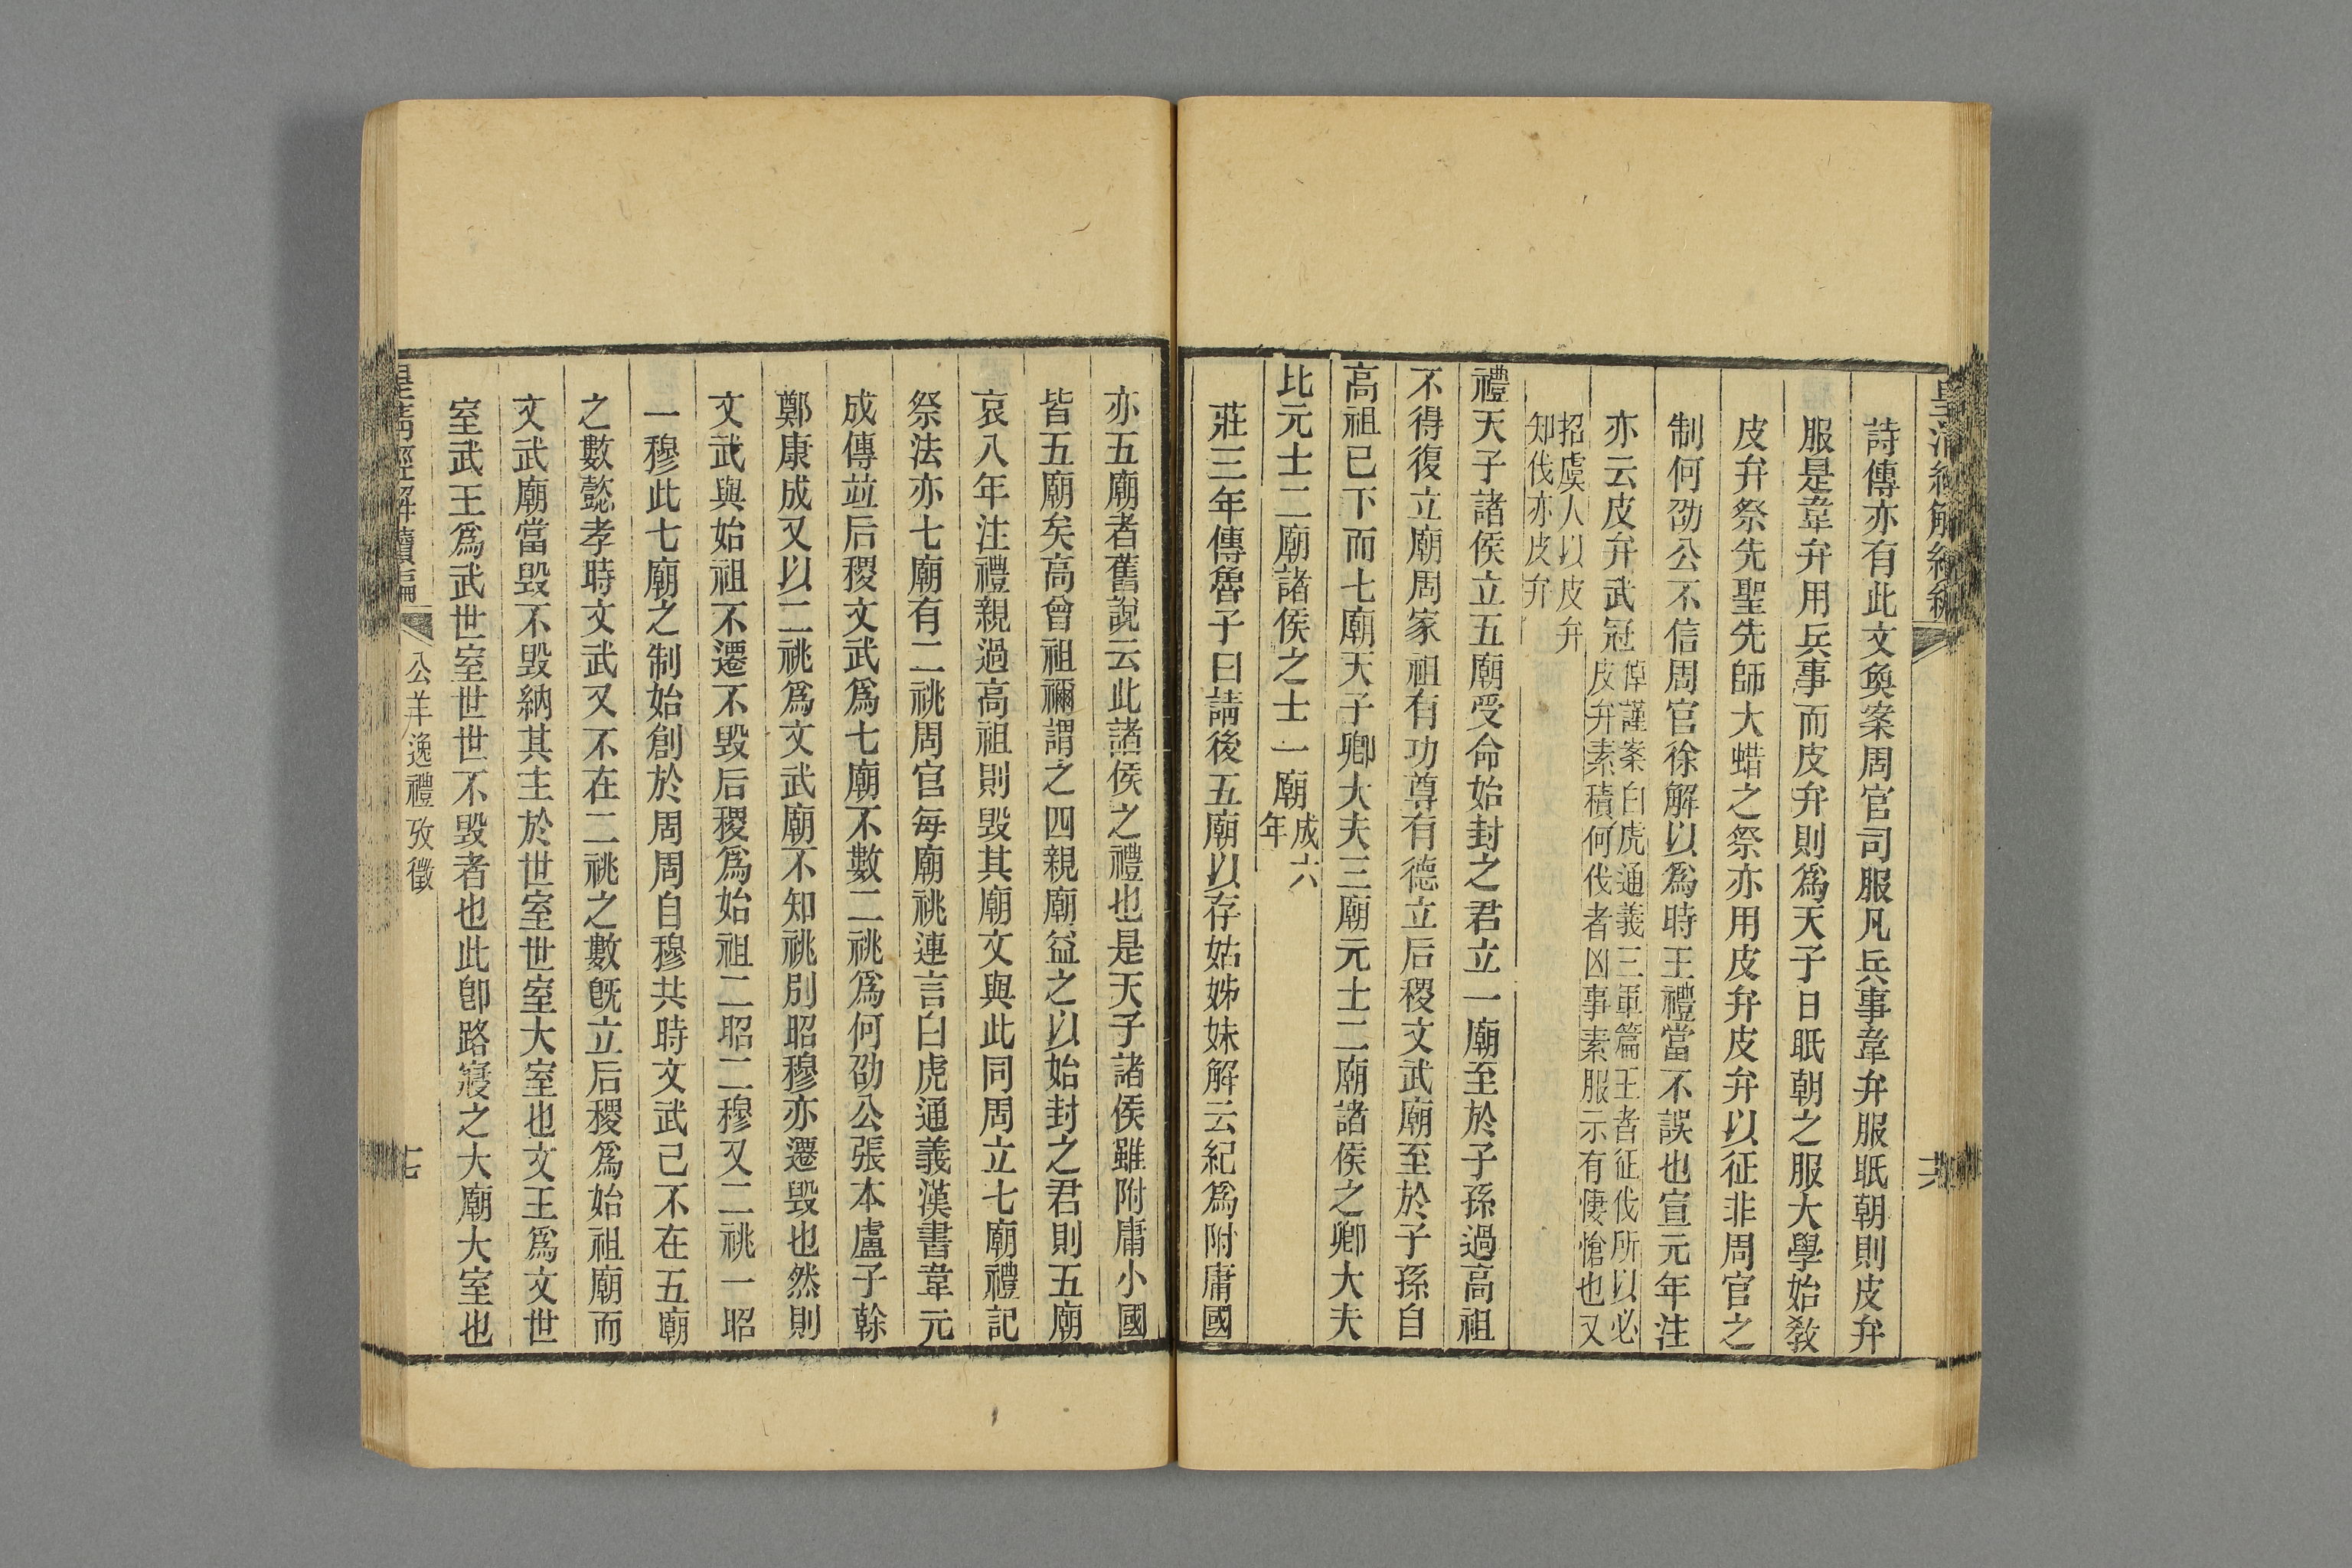 詩傳亦有此文奐案周官司服凡兵事韋弁服眂朝則皮弁
服是韋弁用兵事而皮弁則爲天子日眂朝之服大學始敎
皮弁祭先聖先師大蜡之祭亦用皮弁皮弁以征非周官之
制何劭公不信周官徐解以爲時王禮當不誤也宣元年注
亦云皮弁武冠
倬謹案白虎通義三軍篇王者征伐所以必
皮弁素積何伐者凶事素服示有悽愴也又
招虞人以皮弁
知伐亦皮弁
禮天子諸侯立五廟受命始封之君立一廟至於子孫過高祖
不得復立廟周家祖有功尊有德立后稷文武廟至於子孫自
高祖已下而七廟天子卿大夫三廟元士二廟諸侯之卿大夫
比元士二廟諸侯之士一廟
成六
年
莊三年傳魯子曰請後五廟以存姑姊妹解云紀爲附庸國
亦五廟者舊說云此諸侯之禮也是天子諸侯雖附庸小國
皆五廟矣高曾祖禰謂之四親廟益之以始封之君則五廟
哀八年注禮親過高祖則毀其廟文與此同周立七廟禮記
祭法亦七廟有二祧周官每廟祧連言白虎通義漢書韋元
成傳竝后稷文武爲七廟不數二祧爲何劭公張本盧子榦
鄭康成又以二祧爲文武廟不知祧別昭穆亦遷毀也然則
文武與始祖不遷不毀后稷爲始祖二昭二穆又二祧一昭
一穆此七廟之制始創於周周自穆共時文武已不在五廟
之數懿孝時文武又不在二祧之數旣立后稷爲始祖廟而
文武廟當毀不毀納其主於世室世室大室也文王爲文世
室武王爲武世室世世不毀者也此卽路寢之大廟大室也
公羊逸禮攷徵